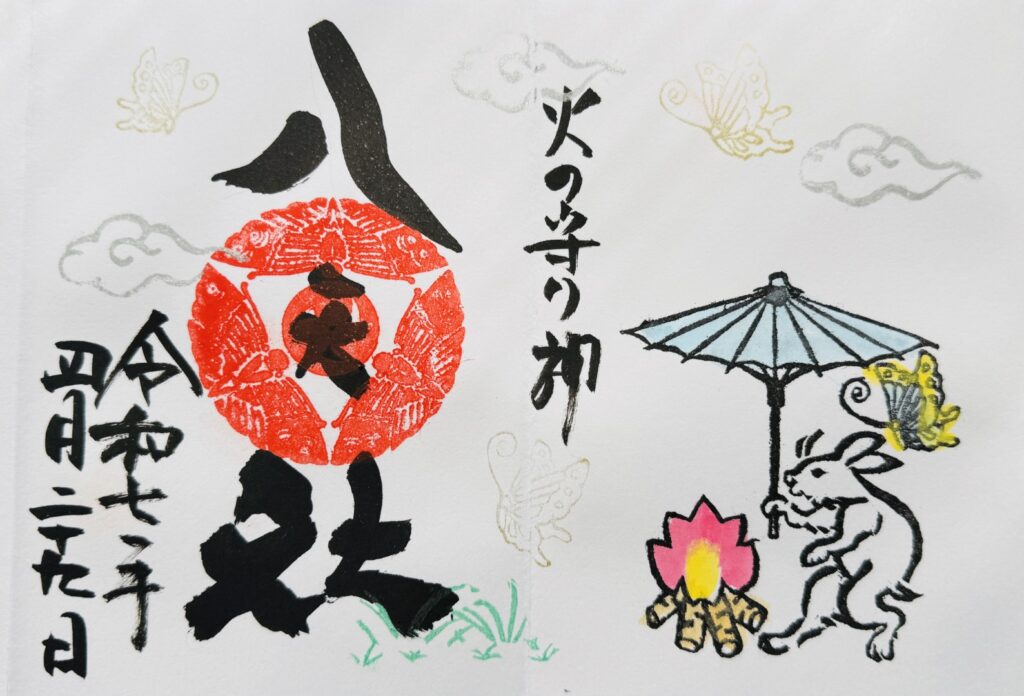 火の守り神
八
社
令和七年
四月二十九日